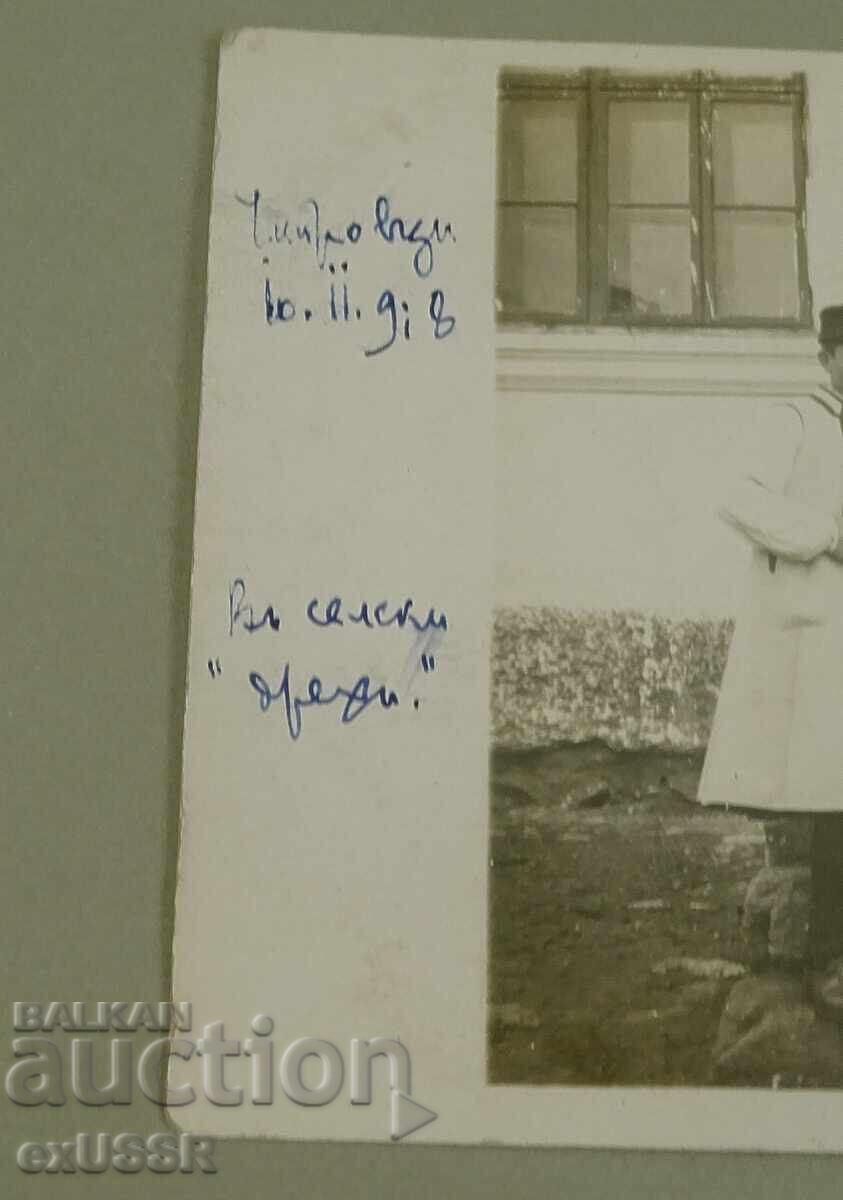 10.II.918
Въ селски
"дрехи."
BALKAN
auction
exUSSR